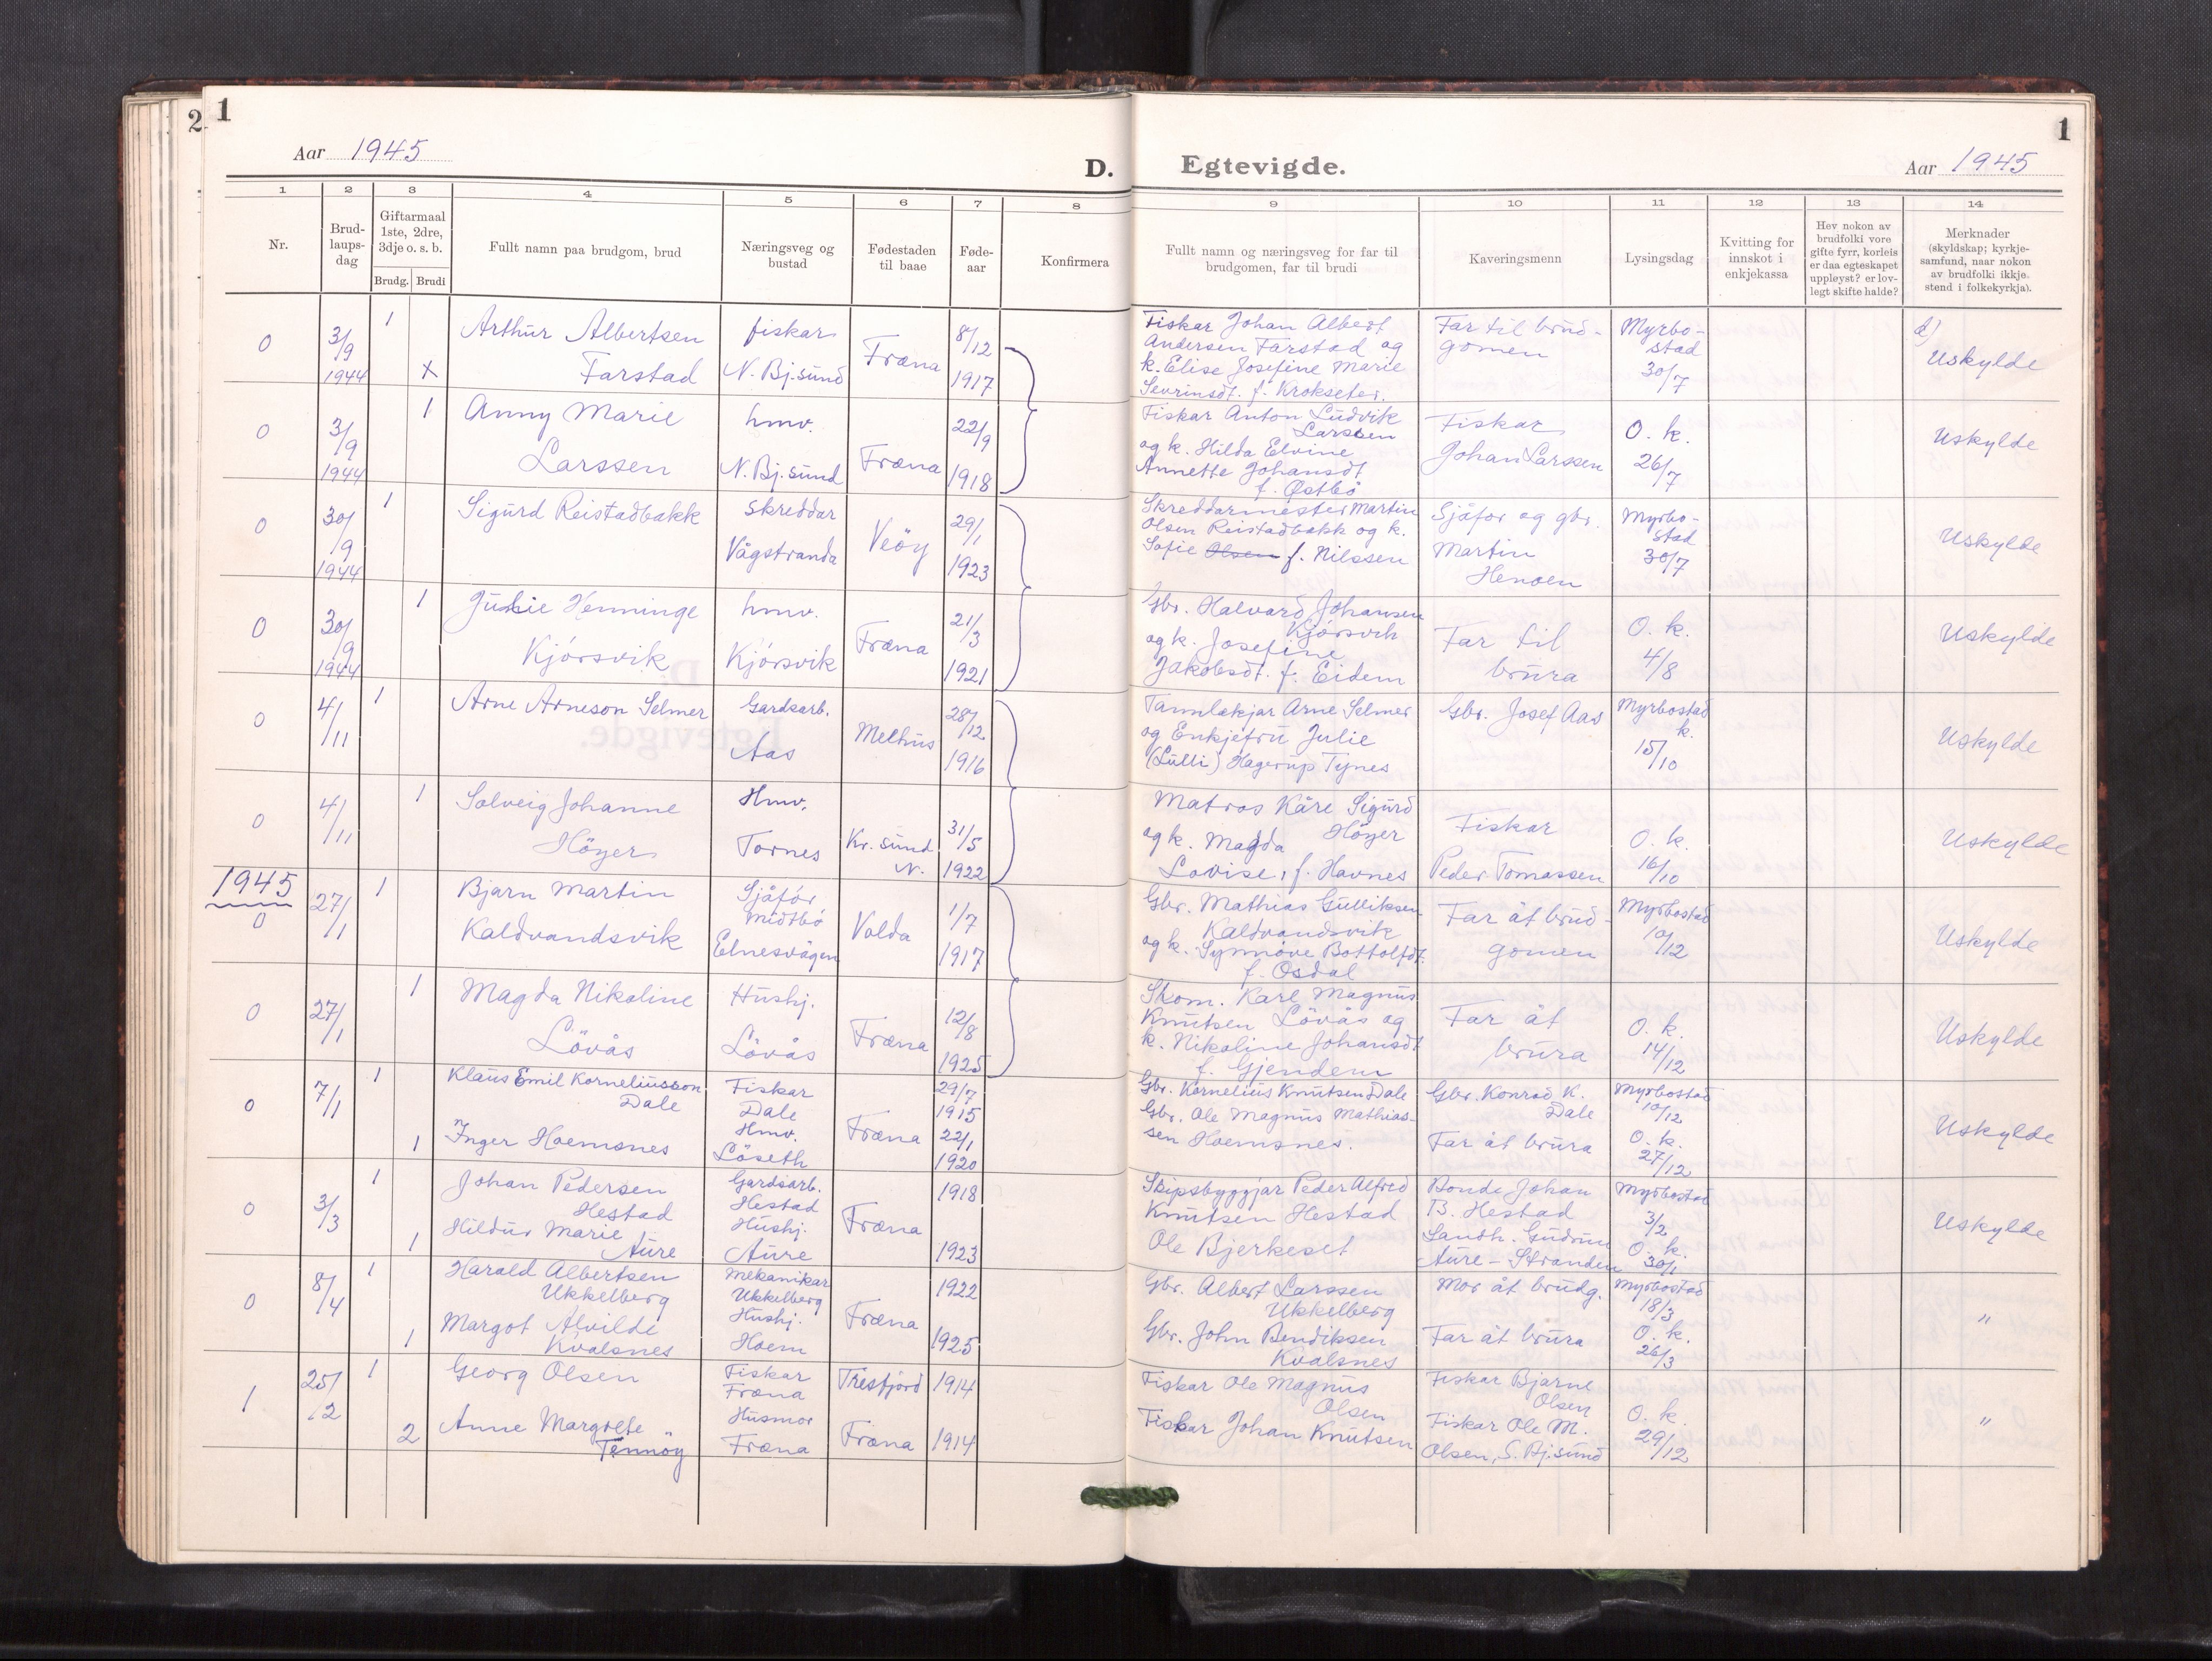 2
1
1
Aar 1945
D.
Egtevigde.
Aar 1945
1
2
3
4
5
6
7
8
9
10
11
12
13
14
Nr.
Brud-
laups-
dag
Giftarmaal
1ste, 2dre,
3dje o. s. b.
Brudg.
Brudi
Fullt namn paa brudgom, brud
Næringsveg og
bustad
Fødestaden
til baae
Føde-
aar
Konfirmera
Fullt namn og næringsveg for far til
brudgomen, far til brudi
Kaveringsmenn
Lysingsdag
Kvitting for
innskot i
enkjekassa
Hev nokon av
brudfolki vore
gifte fyrr, korleis
er daa egteskapet
uppløyst? er lov-
legt skifte halde?
Merknader
(skyldskap; kyrkje-
samfund, naar nokon
av brudfolki ikkje
stend i folkekyrkja).
0
3/9
1944
1
x
Arthur Albertsen
Farstad
fiskar
N. Bj.sund
Fræna
8/12
1917
Fiskar Johan Albert
Andersen Farstad og
k. Elise Josefine Marie
Sevrinsdt. f. Krokseter.
Far til brud-
gomen
Myrbo-
stad
30/7
d)
Uskylde
0
3/9
1944
1
Anny Marie
Larssen
hmv.
N. Bj.sund
Fræna
22/9
1918
Fiskar Anton Ludvik
Larssen
og k. Hilda Elvine
Annette Johansdt
f. Østbö
Fiskar
Johan Larssen
O. k.
26/7
Uskylde
0
30/9
1944
1
Sigurd Reistadbakk
Skreddar
Vågstranda
Veöy
29/1
1923
Skreddarmester Martin
Olsen Reistadbakk og k.
Sofie Olsen f. Nilssen
Sjåfor og gbr.
Martin
Henden
Myrbo-
stad
30/7
Uskylde
0
30/9
1944
1
Julie Henninge
Kjórsvik
hmv.
Kjórsvik
Fræna
21/3
1921
Gbr. Halvard Johansen
Kjórsvik
og k. Josefine
Jakobsdt. f. Eidem
Far til
brura
O. k.
4/8
Uskylde
0
4/11
1
Arne Arneson Selmer
Gardsarb.
Aas
Melhus
28/12
1916
Tannlækjar Arne Selmer
og Enkjefru Julie
(Lulli) Hagerup Tynes
Gbr. Josef Aas
Myrbostad
k.
15/10
Uskylde
0
4/11
1
Solveig Johanne
Höyer
Hmv.
Tornes
Kr. sund
N.
31/5
1922
Matros Kåre Sigurd
Höyer
og k. Magda
Lovise, f. Havnes
Fiskar
Peder Tomassen
O. k.
16/10
Uskylde
1945
0
27/1
1
Bjarn Martin
Kaldvandsvik
Sjåför
Midtbö
Elnesvågen
Volda
1/7
1917
Gbr. Mathias Gulliksen
Kaldvandsvik
og k. Synnöve Bottolfdt.
f. Osdal
Far åt brud-
gomen
Myrbostad
10/12
Uskylde
0
27/1
1
Magda Nikoline
Lövås
Hushj.
Lövås
Fræna
12/8
1925
Skom. Karl Magnus
Knutsen Lövås og
k. Nikoline Johansdt
f. Gjendem
Far åt
brura
O. k.
14/12
Uskylde
0
7/1
1
Klaus Emil Korneliusson
Dale
Fiskar
Dale
29/7
1915
Gbr. Kornelius Knutsen Dale
Gbr. Konrad K.
Dale
Myrbostad
10/12
1
Inger Hoemsnes
Hmv.
Löseth
Fræna
22/1
1920
Gbr. Ole Magnus Mathias-
sen Hoemsnes.
Far åt brura
O. k.
27/12
Uskylde
0
3/3
1
Johan Pedersen
Hestad
Gardsarb.
Hestad
Fræna
1918
Skipsbyggjar Peder Alfred
Knutsen Hestad
Bonde Johan
B. Hestad
Myrbostad
3/2
Uskylde
1
Hildur Marie
Aure
Hushj.
Aure
1923
Ole Bjerkeset
Landh. Gudrun
Aure-Stranden
O. k.
30/1
0
8/4
1
Harald Albertsen
Ukkelberg
Mekanikar
Ukkelberg
Fræna
1922
Gbr. Albert Larssen
Ukkelberg
Mor åt brudg.
Myrbostad
18/3
"
1
Margot Alvilde
Kvalsnes
Hushj.
Hoem
1925
Gbr. John Bendiksen
Kvalsnes
Far åt brura
O. k.
26/3
1
25/2
1
Georg Olsen
Fiskar
Fræna
Tresfjord
1914
Fiskar Ole Magnus
Olsen
Fiskar Bjarne
Olsen
O. k.
29/12
"
2
Anne Margrete
Tennöy
Husmor
Fræna
Fræna
1914
Fiskar Johan Knutsen
Fiskar Ole M.
Olsen, S. Bj.sund